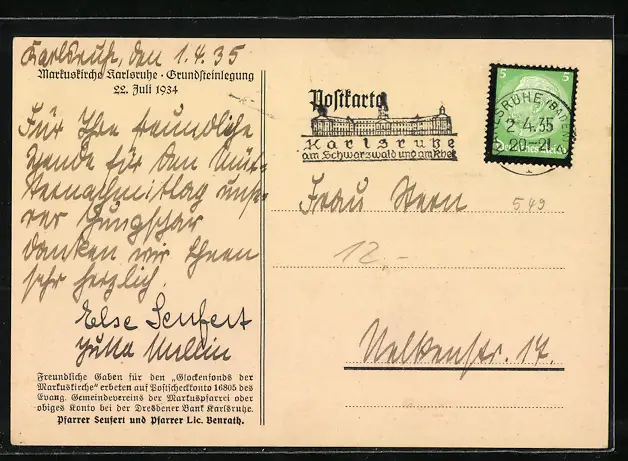 Karlsruhe, den 1.4.35
Markuskirche Karlsruhe · Grundsteinlegung
22. Juli 1934
Für Ihre freundliche
Spende für den Müt-
ternachmittag unse-
rer Jungschar
danken wir Ihnen
sehr herzlich.
Else Seufert
Jutta
Freundliche Gaben für den „Glockenfonds der
Markuskirche" erbeten auf Postscheckkonto 16805 des
Evang. Gemeindevereins der Markuspfarrei oder
obiges Konto bei der Dresdener Bank Karlsruhe.
Pfarrer Seufert und Pfarrer Lic. Benrath.
Postkarte
Karlsruhe
am Schwarzwald und am Rhein
5 5
Deutsches Reich
KARLSRUHE (BADEN)
2.4.35
20-21
1
Frau Stern
549
12.-
Nelkenstr. 17.